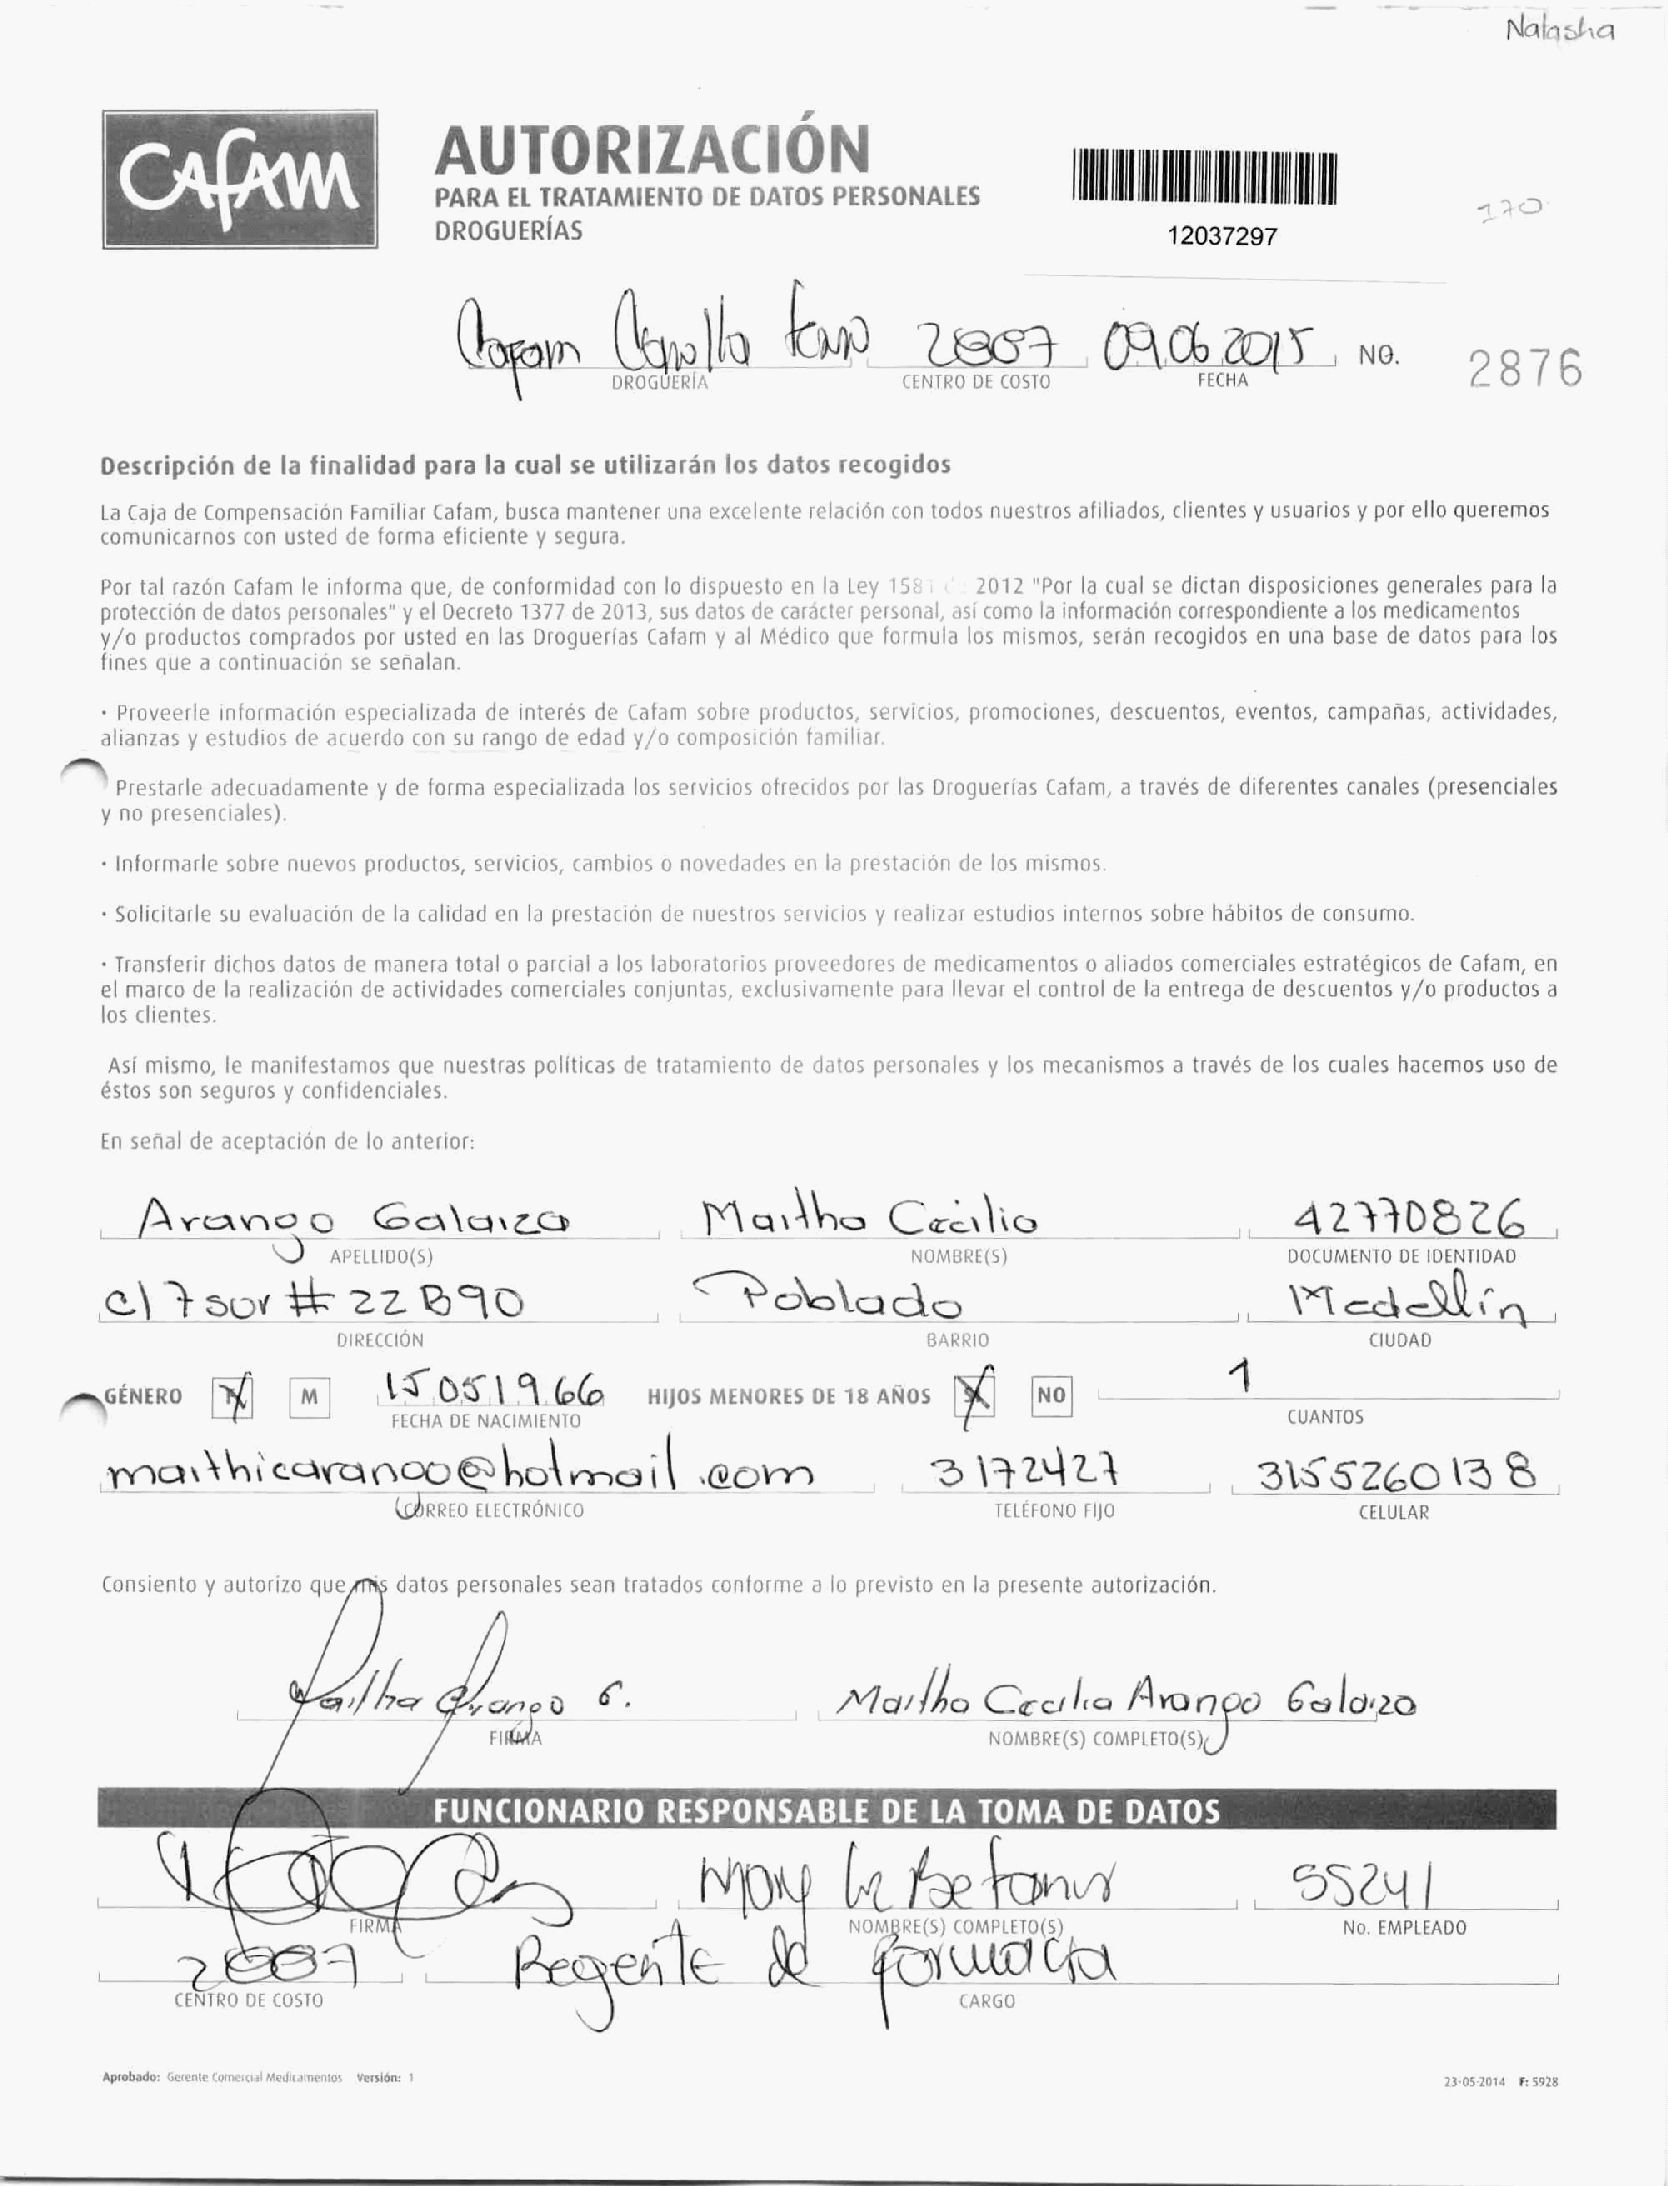 Natasha
CAFAM
AUTORIZACIÓN
PARA EL TRATAMIENTO DE DATOS PERSONALES
DROGUERÍAS
12037297
170
Cafam 09 06 2015 NO. 2876
DROGUERÍA CENTRO DE COSTO FECHA
Descripción de la finalidad para la cual se utilizarán los datos recogidos
La Caja de Compensación Familiar Cafam, busca mantener una excelente relación con todos nuestros afiliados, clientes y usuarios y por ello queremos
comunicarnos con usted de forma eficiente y segura.
Por tal razón Cafam le informa que, de conformidad con lo dispuesto en la Ley 1581 de 2012 "Por la cual se dictan disposiciones generales para la
protección de datos personales" y el Decreto 1377 de 2013, sus datos de carácter personal, así como la información correspondiente a los medicamentos
y/o productos comprados por usted en las Droguerías Cafam y al Médico que formula los mismos, serán recogidos en una base de datos para los
fines que a continuación se señalan.
· Proveerle información especializada de interés de Cafam sobre productos, servicios, promociones, descuentos, eventos, campañas, actividades,
alianzas y estudios de acuerdo con su rango de edad y/o composición familiar.
Prestarle adecuadamente y de forma especializada los servicios ofrecidos por las Droguerías Cafam, a través de diferentes canales (presenciales
y no presenciales).
· Informarle sobre nuevos productos, servicios, cambios o novedades en la prestación de los mismos.
· Solicitarle su evaluación de la calidad en la prestación de nuestros servicios y realizar estudios internos sobre hábitos de consumo.
· Transferir dichos datos de manera total o parcial a los laboratorios proveedores de medicamentos o aliados comerciales estratégicos de Cafam, en
el marco de la realización de actividades comerciales conjuntas, exclusivamente para llevar el control de la entrega de descuentos y/o productos a
los clientes.
Así mismo, le manifestamos que nuestras políticas de tratamiento de datos personales y los mecanismos a través de los cuales hacemos uso de
éstos son seguros y confidenciales.
En señal de aceptación de lo anterior:
Arango Galaiza Martha Cecilia 42770826
APELLIDO(S) NOMBRE(S) DOCUMENTO DE IDENTIDAD
cl 7 sur # 22 B90 Poblado Medellín
DIRECCIÓN BARRIO CIUDAD
GÉNERO M 15 05 1966 HIJOS MENORES DE 18 AÑOS NO 1
FECHA DE NACIMIENTO CUANTOS
marthicarango@hotmail.com 3172427 3155260138
CORREO ELECTRÓNICO TELÉFONO FIJO CELULAR
Consiento y autorizo que mis datos personales sean tratados conforme a lo previsto en la presente autorización.
Martha Arango G. Martha Cecilia Arango Galaizo
FIRMA NOMBRE(S) COMPLETO(S)
FUNCIONARIO RESPONSABLE DE LA TOMA DE DATOS
Mary Luz Betancur 55241
FIRMA NOMBRE(S) COMPLETO(S) No. EMPLEADO
Regente de farmacia
CENTRO DE COSTO CARGO
Aprobado: Gerente Comercial Medicamentos Versión: 1
23-05-2014 F: 5928